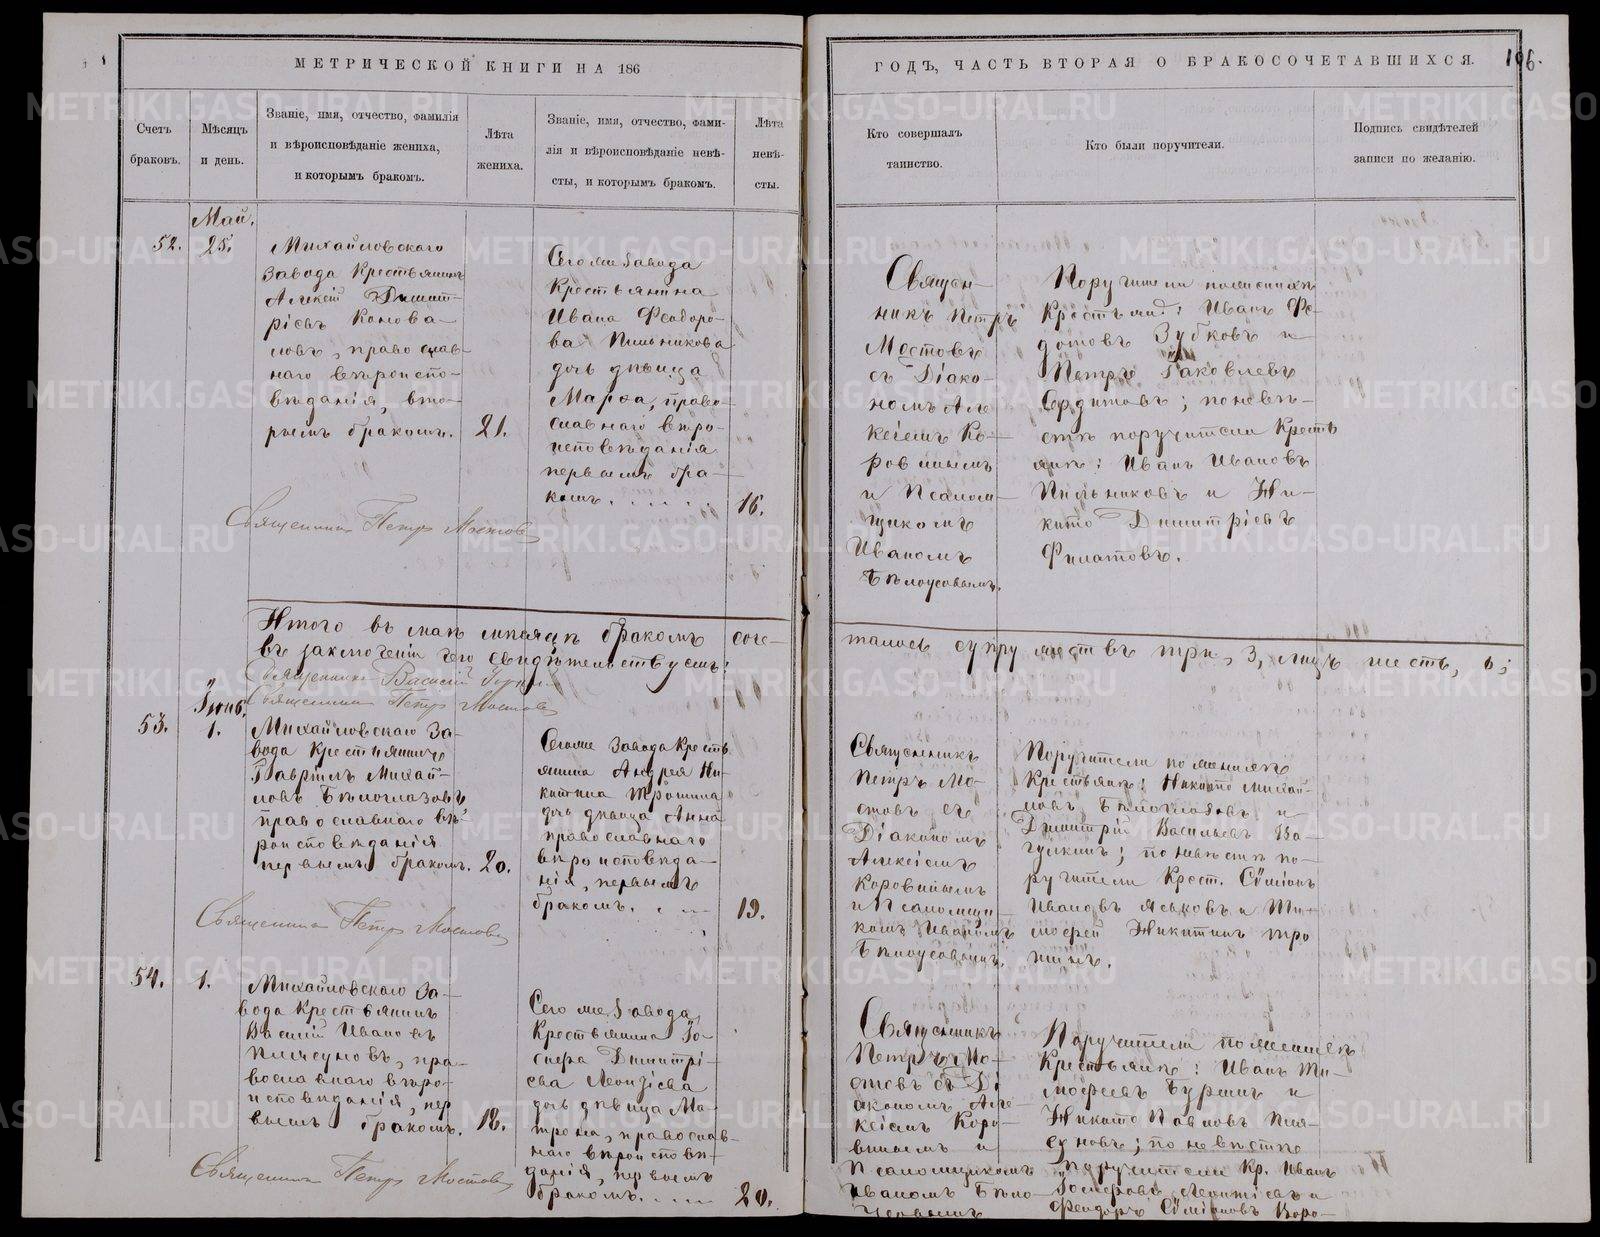 МЕТРИЧЕСКОЙ КНИГИ НА 186
ГОДЪ, ЧАСТЬ ВТОРАЯ О БРАКОСОЧЕТАВШИХСЯ.
106.
Счетъ
браковъ.
Мѣсяцъ
и день.
Званіе, имя, отчество, фамилія
и вѣроисповѣданіе жениха,
и которымъ бракомъ.
Лѣта
жениха.
Званіе, имя, отчество, фами-
лія и вѣроисповѣданіе невѣ-
сты, и которымъ бракомъ.
Лѣта
невѣ-
сты.
Кто совершалъ
таинство.
Кто были поручители.
Подпись свидѣтелей
записи по желанію.
Май.
52.
25.
Михайловскаго
завода Крестьянинъ
Алексѣй Димит-
ріевъ Конова-
ловъ, православ-
наго вѣроиспо-
вѣданія, вто-
рымъ бракомъ.
21.
Сегоже завода
Крестьянина
Ивана Феодоро-
ва Пильникова
дочь дѣвица
Марѳа, право-
славнаго вѣро-
исповѣданія
первымъ бра-
комъ.
16.
Священ-
никъ Петръ
Мостовъ
съ Діако-
номъ Але
ксіемъ Ко-
ровинымъ
и Псалом-
щикомъ
Иваномъ
Бѣлоусовымъ.
Поручители по женихѣ
Крестьяне: Иванъ Фе-
дотовъ Зубковъ и
Петръ Яковлевъ
Сердитовъ; по невѣ-
стѣ поручители Кресть
яне: Иванъ Ивановъ
Пильниковъ и Ни-
кита Димитріевъ
Филатовъ.
Священникъ Петръ Мостовъ
Итого въ маѣ мѣсяцѣ бракомъ соче-
талось супружествъ три, 3, лицъ шесть, 6;
въ заключеніи чего свидѣтельствуемъ:
Священникъ Василій
Священникъ Петръ Мостовъ
Іюнь.
53.
1.
Михайловскаго За-
вода Крестьянинъ
Гавріилъ Михай-
ловъ Бѣлоглазовъ
православнаго вѣ-
роисповѣданія
первымъ бракомъ.
20.
Сегоже завода Кресть
янина Андрея Ни-
китина Трошина
дочь дѣвица Анна
православнаго
вѣроисповѣда-
нія, первымъ
бракомъ.
19.
Священникъ
Петръ Мо-
стовъ съ
Діакономъ
Алексіемъ
Коровинымъ
и Псаломщи
комъ Иваномъ
Бѣлоусовымъ.
Поручители по женихѣ
Крестьяне: Никита Михай-
ловъ Бѣлоглазовъ и
Димитрій Васильевъ Ва-
гулкинъ; по невѣстѣ по-
ручители Крест. Симіонъ
Ивановъ Яськовъ и Ти-
моѳей Никитинъ Тро
шинъ.
Священникъ Петръ Мостовъ
54.
1.
Михайловскаго За-
вода Крестьянинъ
Василій Ивановъ
Плясуновъ, пра-
вославнаго вѣро-
исповѣданія, пер
вымъ бракомъ.
18.
Сегоже Завода
Крестьянина Го-
мера Димитрі-
ева Леонтіева
дочь дѣвица Ма-
трена, православ-
наго вѣроисповѣ-
данія, первымъ
бракомъ.
20.
Священникъ
Петръ Мо-
стовъ съ Ді
акономъ Але-
ксіемъ Коро-
винымъ и
Псаломщикомъ
Иваномъ Бѣло-
Поручители по женихѣ
Крестьяне: Иванъ Ти-
моѳеевъ Бурминъ и
Никита Павловъ Пля-
суновъ; по невѣстѣ
поручители Кр. Иванъ
Гомеровъ Леонтіевъ и
Феодоръ Симіоновъ Воро-
Священникъ Петръ Мостовъ
METRIKI.GASO-URAL.RU